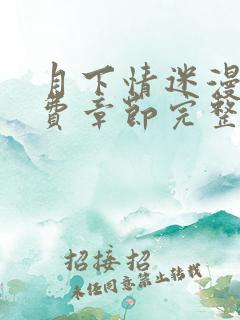 月下情迷漫
费章节完整
招接招
未经同意禁止转载